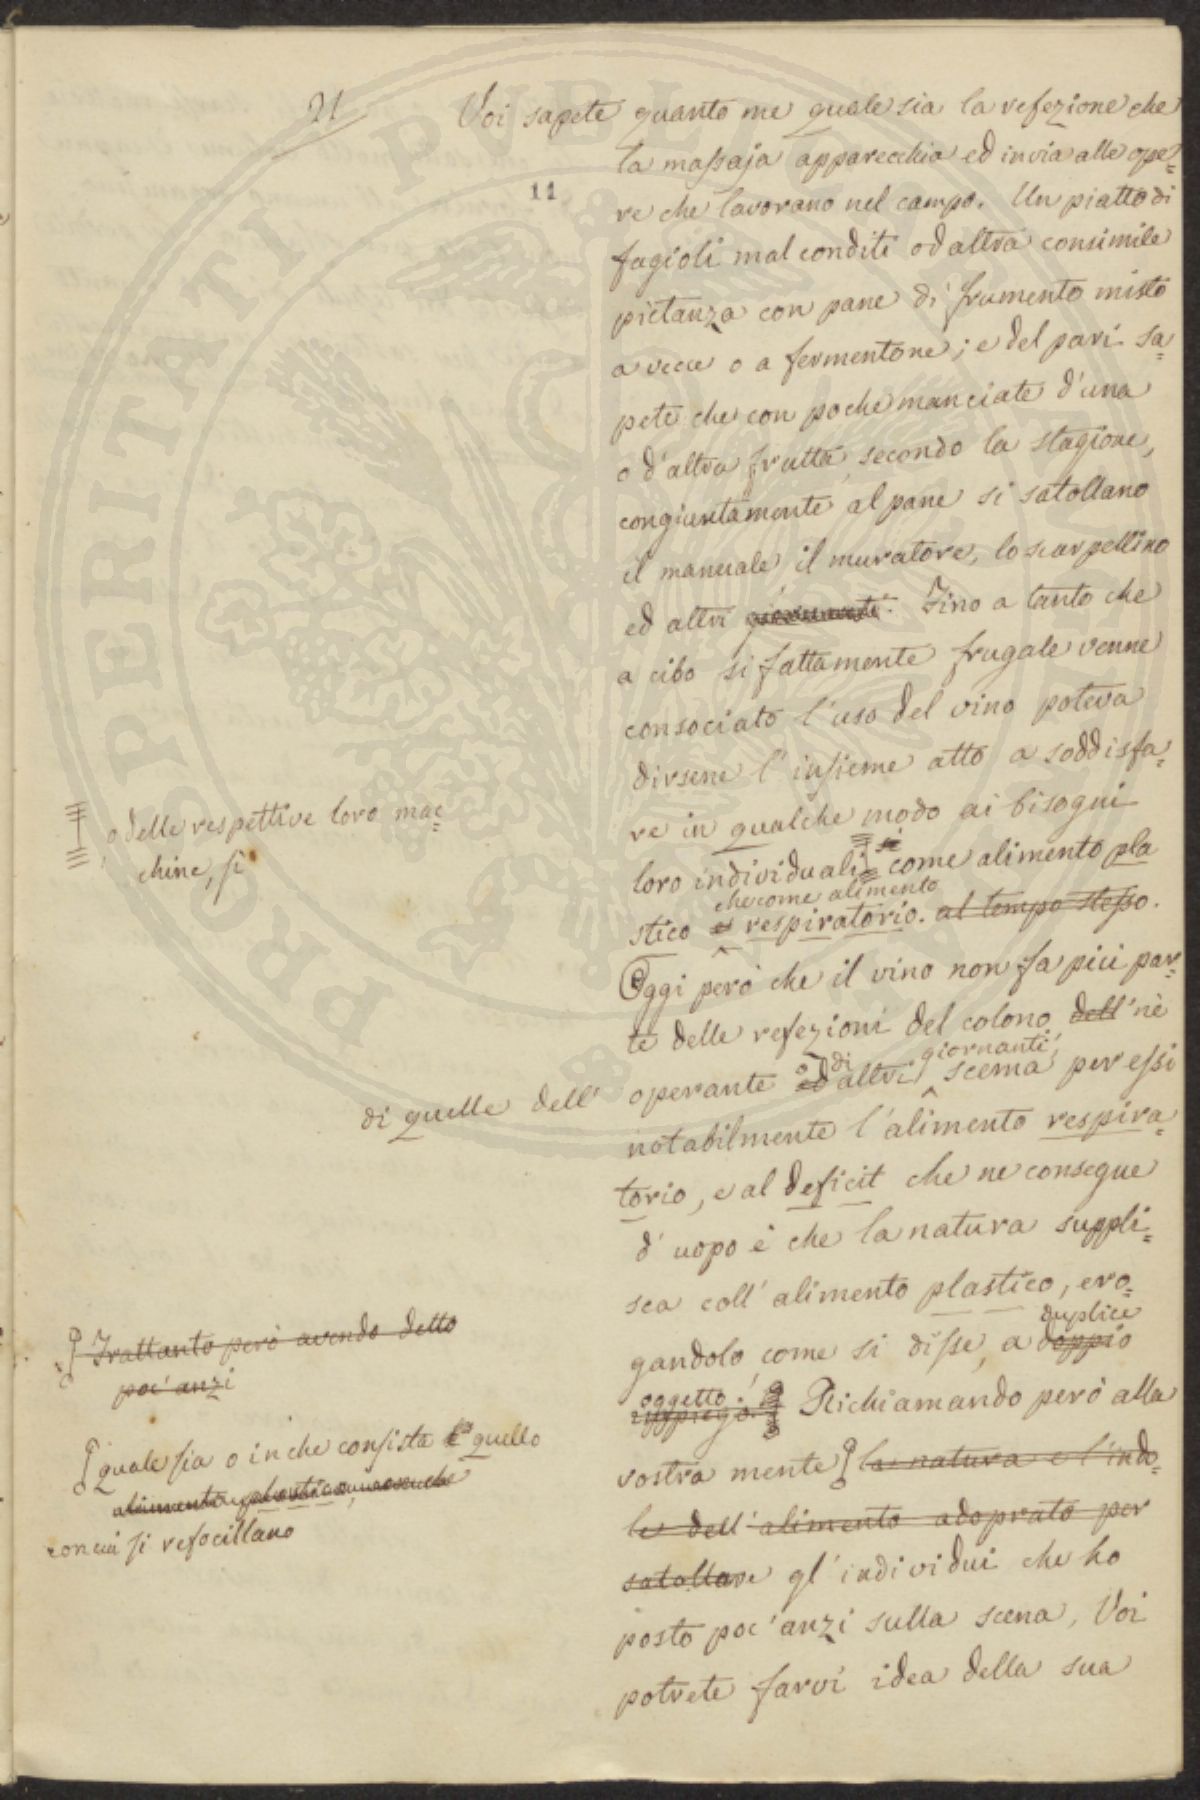 21
11
Voi sapete quanto me quale sia la refezione che
la massaja apparecchia ed invia alle ope=
re che lavorano nel campo. Un piatto di
fagioli mal conditi od altra consimile
pietanza con pane di frumento misto
a vecce o a fermentone; e del pari sa=
pete che con poche manciate d'una
o d'altra frutta, secondo la stagione,
congiuntamente al pane si satollano
il manuale il muratore, lo scarpellino
ed altri. Fino a tanto che
a cibo sì fattamente frugale venne
consociato l'uso del vino poteva
dirsene l'insieme atto a soddisfa=
re in qualche modo ai bisogni
loro individuali come alimento pla
o delle respettive loro mac=
chine, sì
che come alimento
stico e respiratorio. al tempo stesso.
Oggi però che il vino non fa più par=
te delle refezioni del colono, dell' nè
di quelle dell'
di giornanti,
operante od altri scema per essi
notabilmente l'alimento respira=
torio, e al deficit che ne consegue
d'uopo è che la natura suppli=
sca coll'alimento plastico, ero=
duplice
gandolo come si disse, a doppio
oggetto.
impiego. Richiamando però alla
vostra mente la natura e l'indo=
le dell'alimento adoprato per
satollare gl'individui che ho
posto poc'anzi sulla scena, Voi
potrete farvi idea della sua
Frattanto però avendo detto
poc'anzi
quale sia o in che consista quello
alimento plastico
con cui si refocillano
PROSPERITATI PUBLICAE